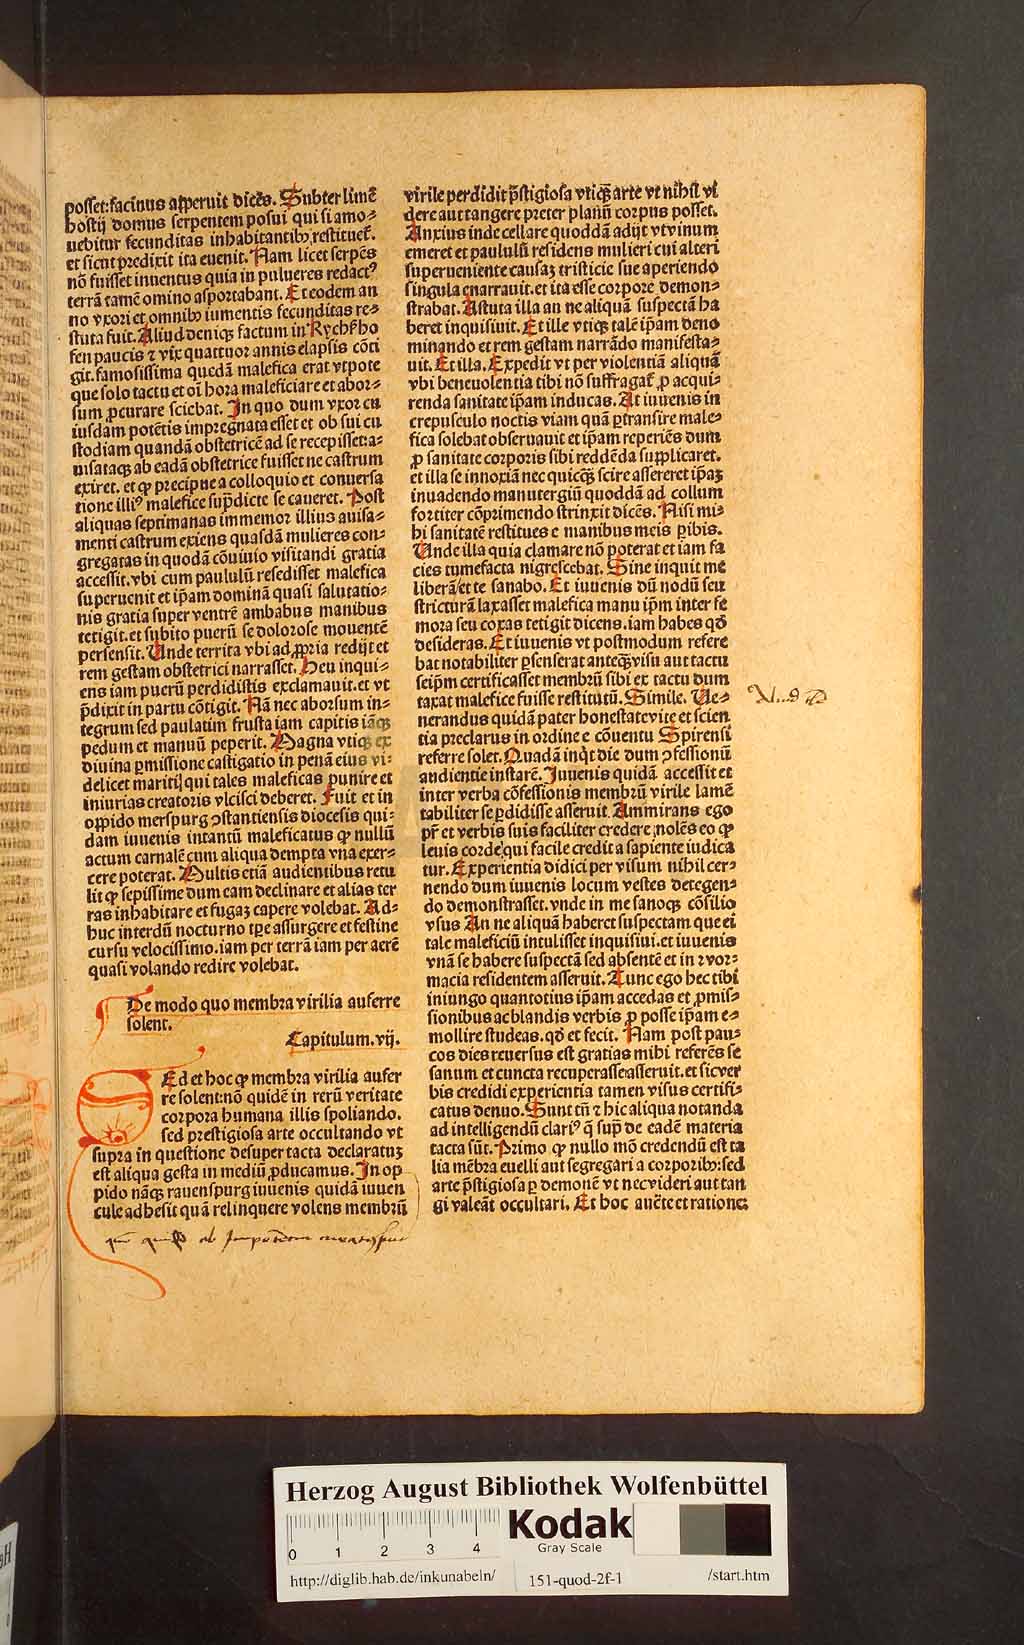 posset: facinus aꝑeruit dicēs. Subter limē
hostij domus serpentem posui qui si amo⸗
uebitur fecunditas inhabitantibꝫ restituet̄.
et sicut predixit ita euenit. Nam licet serpēs
nō fuisset inuentus quia in pulueres redactꝰ
terrā tamē omino asportabant. Et eodem an
no vxori et omnibꝫ iumentis fecunditas re⸗
stituta fuit. Aliud deniqꝫ factum in Rychſho
fen paucis ⁊ vix quattuor annis elapsis cōti
git. famosissima quedā malefica erat vtpote
que solo tactu et oī hora maleficiare et abor⸗
sum ꝓcurare sciebat. In quo dum vxor cu
iusdam potētis impregnata esset et ob sui cu
stodiam quandā obstetricē ad se recepisset: a⸗
uisataqꝫ ab eadā obstetrice fuisset ne castrum
exiret. et ꝙ precipue a colloquio et conuersa
tione illiꝰ malefice sup̄dicte se caueret. Post
aliquas septimanas immemor illius auisa⸗
menti castrum exiens quasdā mulieres con⸗
gregatas in quodā cōuiuio visitandi gratia
accessit. vbi cum paululū resedisset malefica
superuenit et ip̄am dominā quasi salutatio⸗
nis gratia super ventrē ambabus manibus
tetigit. et subito puerū se dolorose mouentē
persensit. Unde territa vbi ad ꝓpria redijt et
rem gestam obstetrici narrasset. Heu inqui⸗
ens iam puerū perdidistis exclamauit. et vt
p̄dixit in partu cōtigit. Nā nec aborsum in⸗
tegrum sed paulatim frusta iam capitis iāqꝫ
pedum et manuū peperit. Magna vtiqꝫ ex
diuina ꝑmissione castigatio in penā eius vi⸗
delicet maritij qui tales maleficas punire et
iniurias creatoris vlcisci deberet. Fuit et in
oppido merspurg ↄstantiensis diocesis qui⸗
dam iuuenis intantū maleficatus ꝙ nullū
actum carnalē cum aliqua dempta vna exer⸗
cere poterat. Multis etiā audientibus retu
lit ꝙ sepissime dum eam declinare et alias ter
ras inhabitare et fugaꝫ capere volebat. Ad⸗
huc interdū nocturno tꝑe assurgere et festine
cursu velocissimo. iam per terrā iam per aerē
quasi volando redire volebat.
De modo quo membra virilia auferre
solent.
Capitulum. vij.
SEd et hoc ꝙ membra virilia aufer
re solent: nō quidē in rerū veritate
corpora humana illis spoliando.
sed prestigiosa arte occultando vt
supra in questione desuper tacta declaratuꝫ
est aliqua gesta in mediū ꝓducamus. In op
pido nāqꝫ rauenspurg iuuenis quidā iuuen
cule adhesit quā relinquere volens membrū
virile perdidit p̄stigiosa vtiqꝫ arte vt nihil vi
dere aut tangere preter planū corpus posset.
Anxius inde cellare quoddā adijt vt vinum
emeret et paululū residens mulieri cui alteri
superueniente causaꝫ tristicie sue aperiendo
singula enarrauit. et ita esse corpore demon⸗
strabat. Astuta illa an ne aliquā suspectā ha
beret inquisiuit. Et ille vtiqꝫ talē ip̄am deno
minando et rem gestam narrādo manifesta⸗
uit. Et illa. Expedit vt per violentiā aliquā
vbi beneuolentia tibi nō suffragat̄ ꝓ acqui⸗
renda sanitate ip̄am inducas. At iuuenis in
crepusculo noctis viam quā ꝑtransire male⸗
fica solebat obseruauit et ip̄am reperiēs dum
ꝓ sanitate corporis sibi reddēda supplicaret.
et illa se innoxiā nec quicqꝫ scire assereret ip̄aꝫ
inuadendo manutergiū quoddā ad collum
fortiter cōprimendo strinxit dicēs. Nisi mi⸗
hi sanitatē restitues e manibus meis ꝑibis.
Unde illa quia clamare nō poterat et iam fa
cies tumefacta nigrescebat. Sine inquit me
liberā/ et te sanabo. Et iuuenis dū nodū seu
stricturā laxasset malefica manu ip̄m inter fe
mora seu coxas tetigit dicens. iam habes qḋ
desideras. Et iuuenis vt postmodum refere
bat notabiliter ꝑsenserat anteqꝫ visu aut tactu
seip̄m certificasset membrū sibi ex tactu dum
taxat malefice fuisse restitutū. Simile. Ue⸗
nerandus quidā pater honestate vite et scien
tia preclarus in ordine e cōuentu Spirensi
referre solet. Quadā inqͥt die dum ↄfessionū
audientie instarē. Iuuenis quidā accessit et
inter verba cōfessionis membrū virile lamē
tabiliter se ꝑdidisse asseruit. Ammirans ego
pr̄ et verbis suis faciliter credere nolēs eo ꝙ
leuis corde qui facile credit a sapiente iudica
tur. Experientia didici per visum nihil cer⸗
nendo dum iuuenis locum vestes detegen⸗
do demonstrasset. vnde in me sanoqꝫ cōsilio
vsus An ne aliquā haberet suspectam que ei
tale maleficiū intulisset inquisiui. et iuuenis
vnā se habere suspectā sed absentē et in ⁊ vor⸗
macia residentem asseruit. Tunc ego hec tibi
iniungo quantotius ip̄am accedas et ꝓmis⸗
sionibus ac blandis verbis ꝓ posse ip̄am e⸗
mollire studeas. qḋ et fecit. Nam post pau⸗
cos dies reuersus est gratias mihi referēs se
sanum et cuncta recuperasse asseruit. et sic ver
bis credidi experientia tamen visus certifi⸗
catus denuo. Sunt tn̄ ⁊ hic aliqua notanda
ad intelligendū clariꝰ q̄ sup̄ de eadē materia
tacta sūt. Primo ꝙ nullo mō credendū est ta
lia mēbra euelli aut segregari a corporibꝫ: sed
arte p̄stigiosa ꝑ demonē vt nec videri aut tan
gi valeāt occultari. Et hoc auc̄te et ratione:
Herzog August Bibliothek Wolfenbüttel
0 1 2 3 4
Kodak
Gray Scale
http://diglib.hab.de/inkunabeln/ 151-quod-2f-1 /start.htm